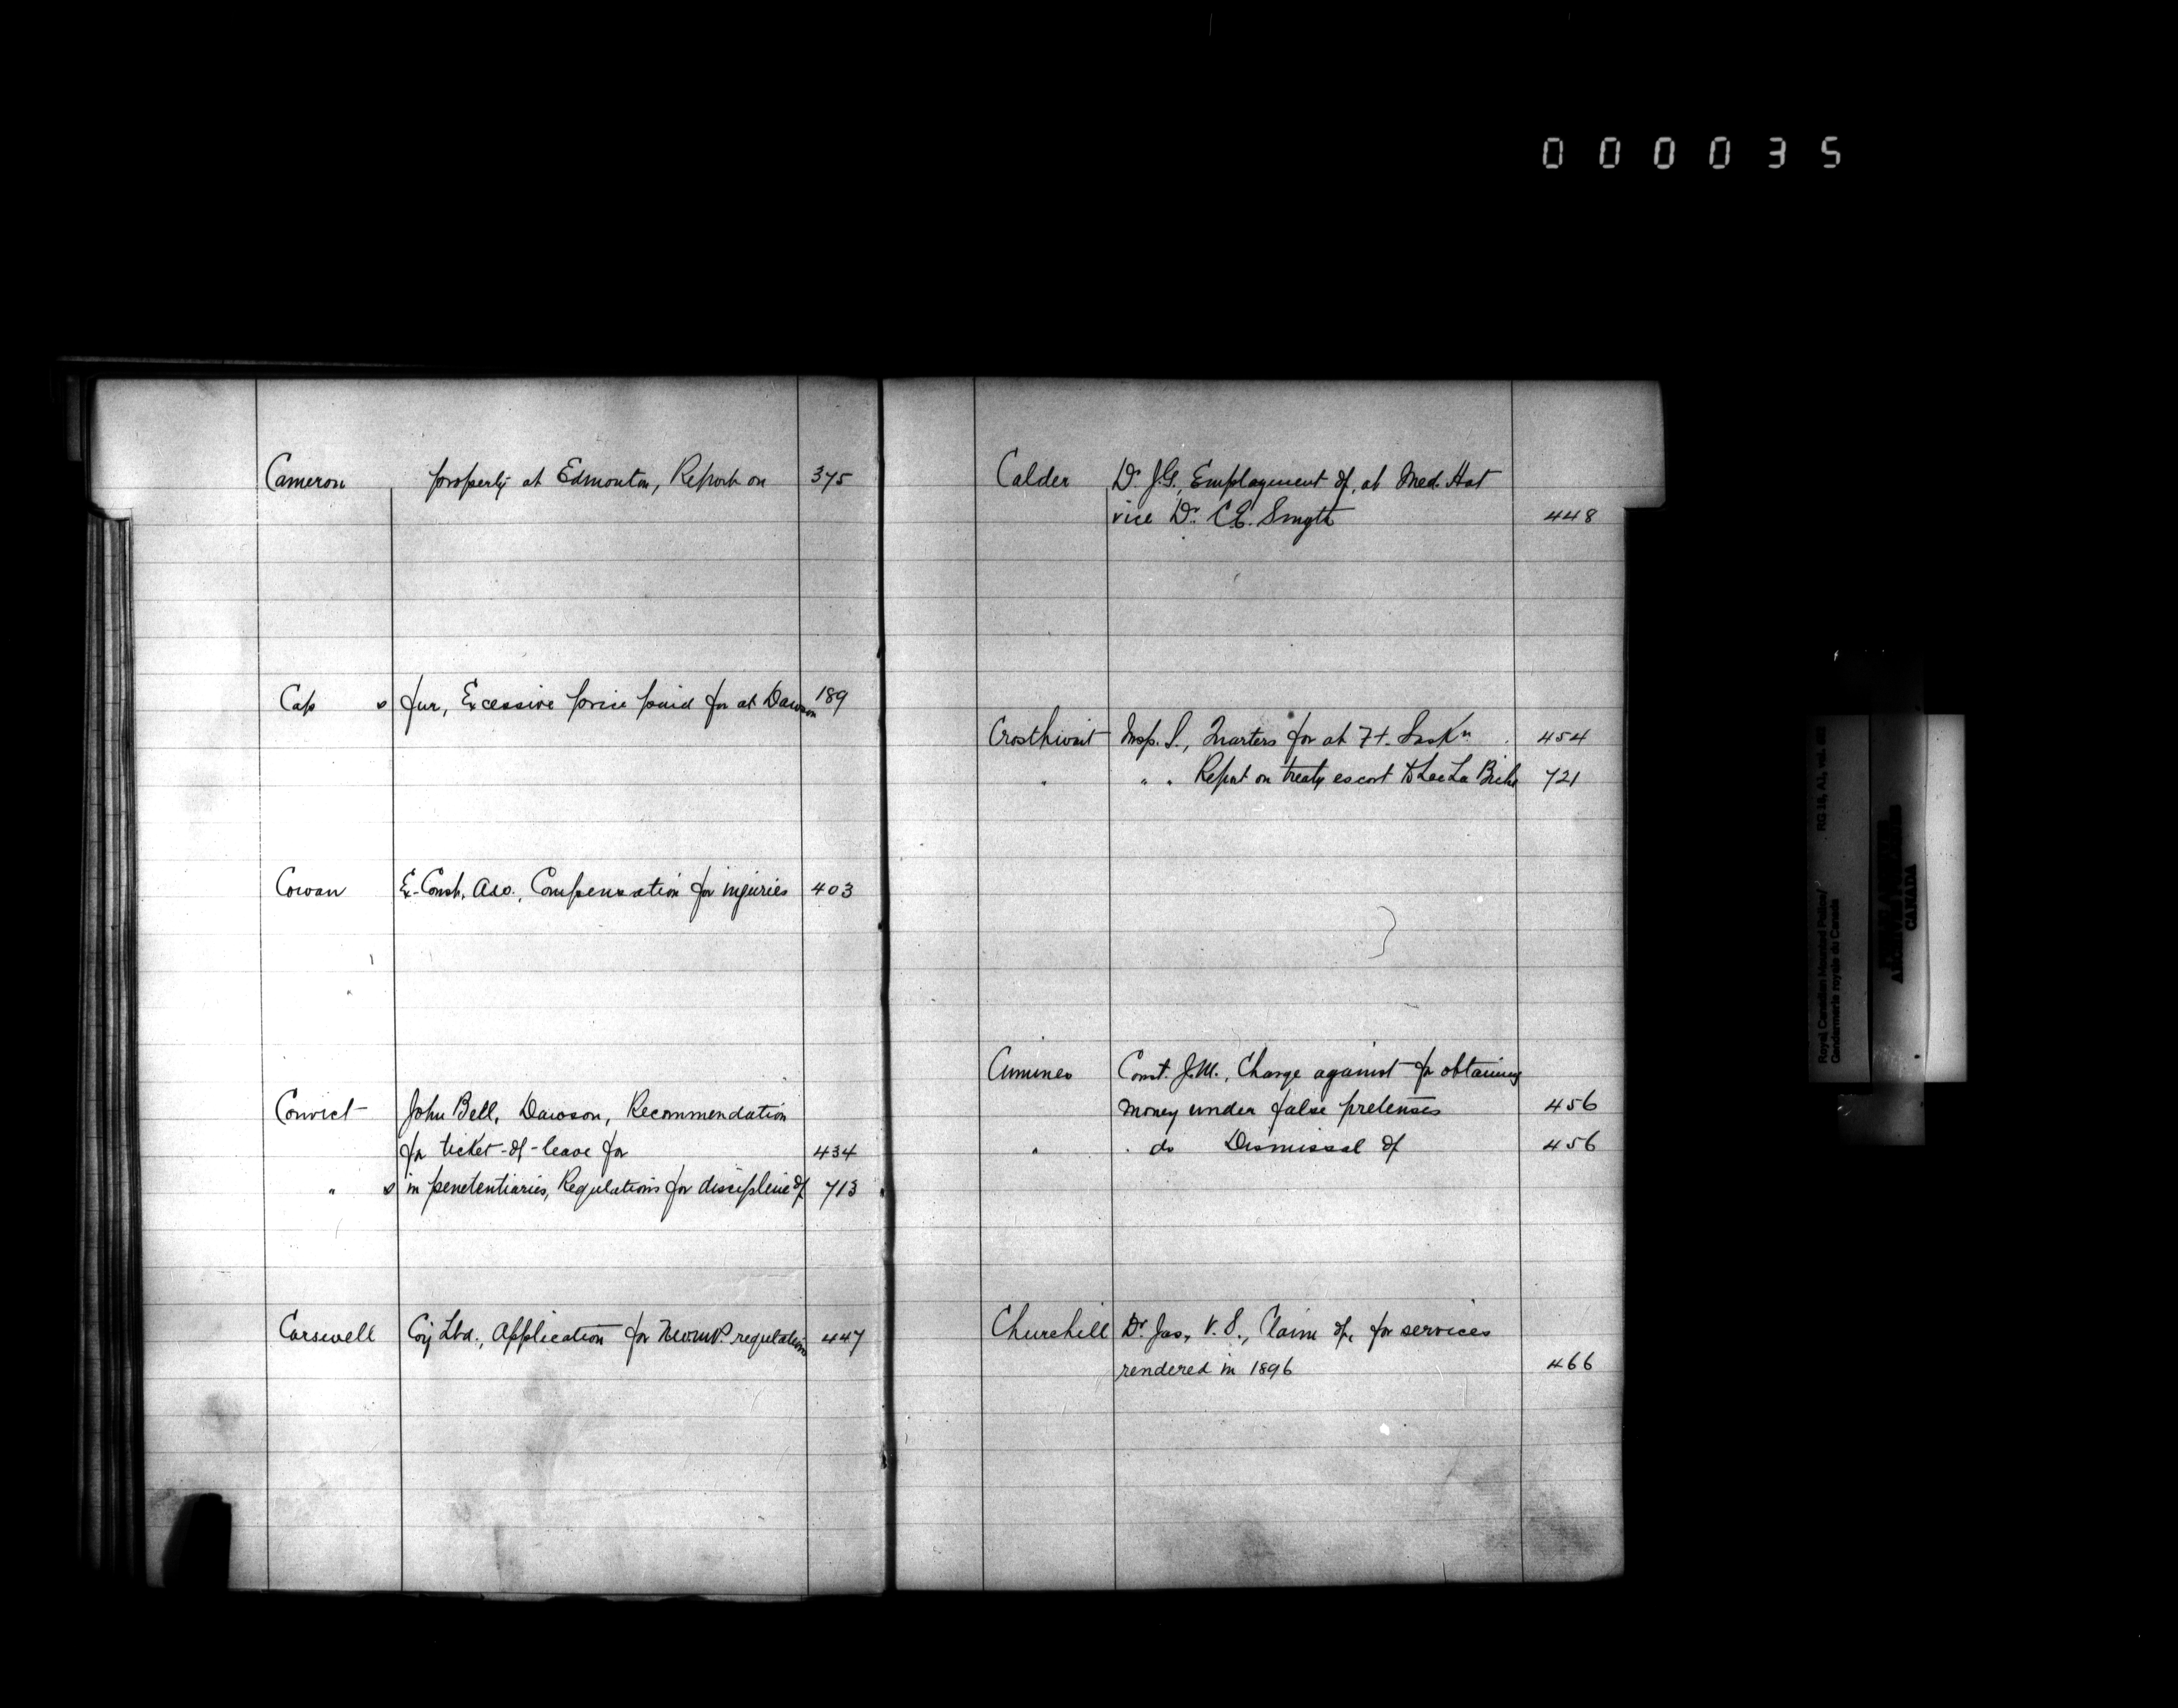 000035
Cameron property at Edmonton, Report on 375
Cap s fur, Excessive price paid for at Dawson 189
Cowan Ex-Const. Compensation for injuries 403
Convict John Bell, Dawson, Recommendation
for ticket-of-leave for 434
" s in penetentiaries, Regulations for discipline of 713
Carswell Coy Ltd., Application for N.W.M.P. regulations 447
Calder Dr. J.G., Employment of, at Med. Hat
vice Dr. C.E. Smyth 448
Crosthwait Insp. S., Quarters for at Ft. Saskn. 454
" " " Report on treaty escort to Lac La Biche 721
Const. J.M., Charge against for obtaining
money under false pretenses 456
" " do Dismissal of 456
Churchill Dr. Jas, V.S., Claim of, for services
rendered in 1896 466
Royal Canadian Mounted Police/
Gendarmerie royale du Canada
RG 18, A1, vol.
CANADA